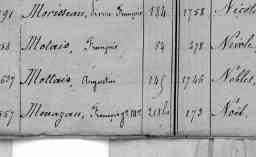 98 Morisseau, Pierre François 184 1758 Nicole
38 Molais, François 54 278 Nicole,
527 Mollais, Augustin 145 1746 Noblet,
557 Monazan, François 173 Noël,